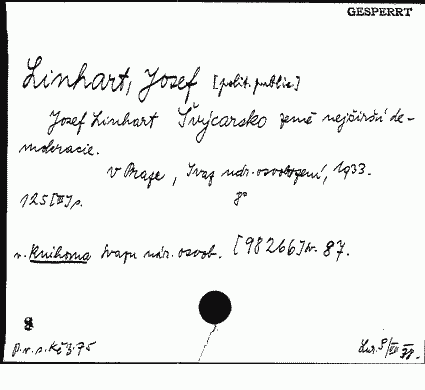 GESPERRT
Linhart, Josef [polit. public.]
Josef Linhart Švýcarsko země nejčirší de-
mokracie.
V Praze, Svaz nár. osvobození, 1933.
125 [III] s. 8°
v. Knihovna Svazu nár. osvob. [98266] sv. 87.
8
p. v. s. Kč 3.75